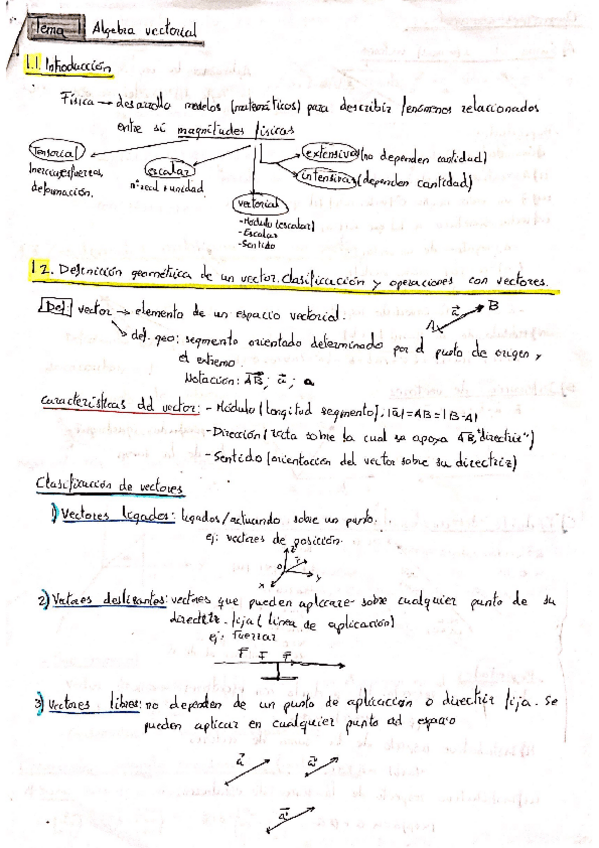 Tema 1 Algebra vectorial
1.1. Introducción
Física → desarrolla modelos (matemáticos) para describir fenómenos relacionados
entre sí magnitudes físicas
Tensorial
Inercia, esfuerzos,
deformación.
escalar
nº real + unidad
vectorial
- Módulo (escalar)
- Escalar
- Sentido
extensivas (no dependen cantidad)
intensivas (dependen cantidad)
1.2. Definición geométrica de un vector. Clasificación y operaciones con vectores.
Def: vector → elemento de un espacio vectorial.
def. geo: segmento orientado determinado por el punto de origen y
el extremo.
Notación: AB; a; a
A a B
Características del vector: - Módulo (longitud segmento). |a| = AB = |B-A|
- Dirección (recta sobre la cual se apoya AB, "directriz")
- Sentido (orientación del vector sobre su directriz)
Clasificación de vectores
1) Vectores ligados: ligados/actuando sobre un punto.
ej: vectores de posición.
z
O r
x y
2) Vectores deslizantes: vectores que pueden aplicarse sobre cualquier punto de su
directriz fija (linea de aplicación)
ej: fuerzas
F F F
3) Vectores libres: no dependen de un punto de aplicación o directriz fija. Se
pueden aplicar en cualquier punto del espacio
a a'
a'